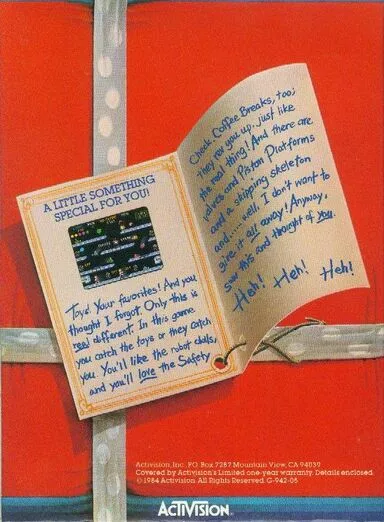 A LITTLE SOMETHING
SPECIAL FOR YOU!
Toys! Your favorites! And you
thought I forgot. Only this is
real different. In this game
you catch the toys or they catch
you. You'll like the robot dolls,
and you'll love the Safety
Check Coffee Breaks, too;
they rev you up. just like
the real thing! And there are
valves and Piston Platforms
and a shipping skeleton
and.... well, I don't want to
give it all away! Anyway,
saw this and thought of you.
Heh! Heh! Heh!
Activision, Inc., P.O. Box 7287 Mountain View, CA 94039
Covered by Activision's Limited one-year warranty. Details enclosed.
© 1984 Activision. All Rights Reserved. G-942-05
ACTIVISION